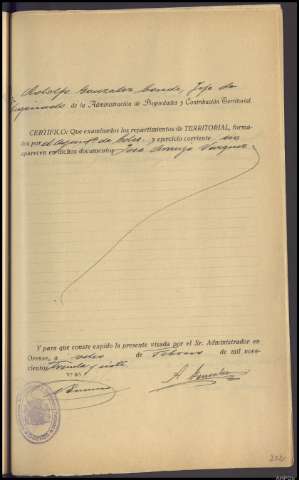 Adolfo Gonzalez Conde, Jefe de
Negociado de la Administración de Propiedades y Contribución Territorial.
CERTIFICO: Que examinados los repartimientos de TERRITORIAL, forma-
dos por el Ayunt.º de y ejercicio corriente, no
aparecen en dichos documentos, Jose Vazquez
Y para que conste expido la presente visada por el Sr. Administrador en
Orense, a ocho de Febrero de mil nove-
cientos treinta y siete
Vº Bº
A. Gonzalez